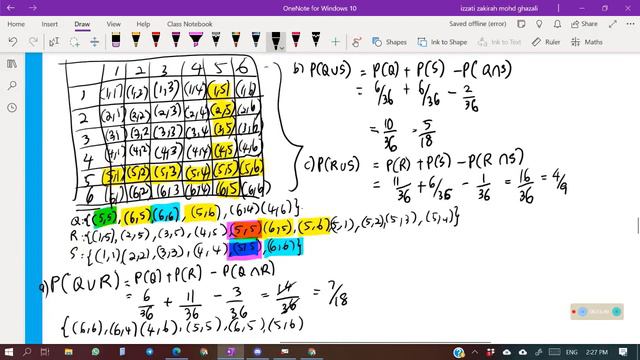 OneNote for Windows 10
izzati zakirah mohd ghazali
Home Insert Draw View Help
Saved offline (error)
Share
Shapes
Ink to Shape
Ink to Text
Math
1 2 3 4 5 6
1 (1,1) (1,2) (1,3) (1,4) (1,5) (1,6)
2 (2,1) (2,2) (2,3) (2,4) (2,5) (2,6)
3 (3,1) (3,2) (3,3) (3,4) (3,5) (3,6)
4 (4,1) (4,2) (4,3) (4,4) (4,5) (4,6)
5 (5,1) (5,2) (5,3) (5,4) (5,5) (5,6)
6 (6,1) (6,2) (6,3) (6,4) (6,5) (6,6)
Q:{(5,5), (6,5) (6,6), (5,6), (6,4) (4,6)}
R:{(1,5), (2,5), (3,5), (4,5), (5,5) (6,5), (5,6) (5,1), (5,2) (5,3), (5,4)}
S:{(1,1) (2,2), (3,3), (4,4) (5,5), (6,6)}
a) P(Q∪R) = P(Q) + P(R) - P(Q∩R)
= 6/36 + 11/36 - 3/36 = 14/36 = 7/18
{(6,6), (6,4) (4,6), (5,5), (6,5), (5,6)
b) P(Q∪S) = P(Q) + P(S) - P(Q∩S)
= 6/36 + 6/36 - 2/36
= 10/36 = 5/18
c) P(R∪S) = P(R) + P(S) - P(R∩S)
= 11/36 + 6/36 - 1/36 = 16/36 = 4/9
2:27 PM